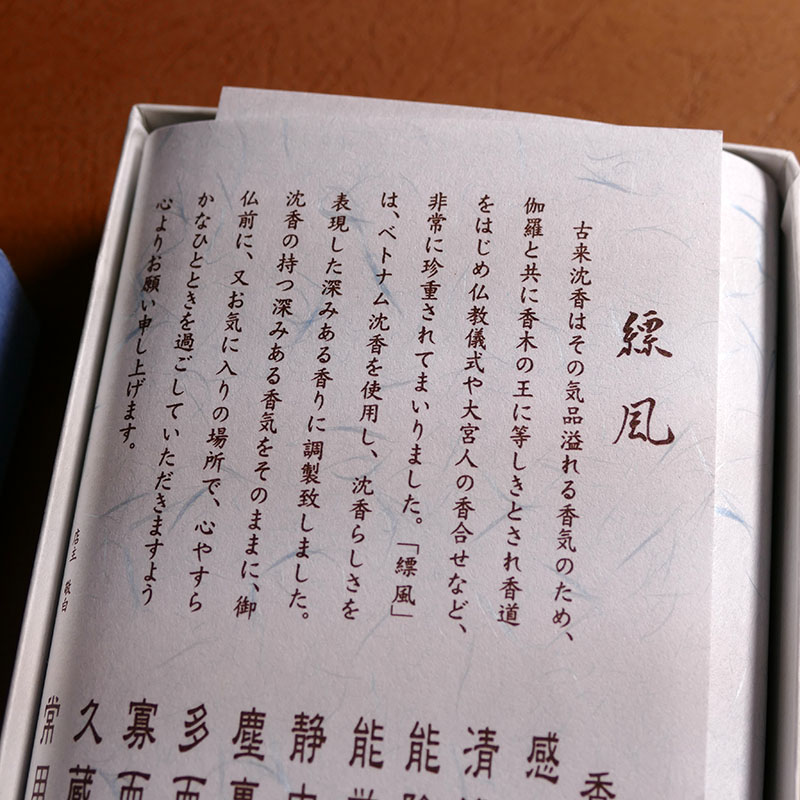 縹風
古来沈香はその気品溢れる香気のため、
伽羅と共に香木の王に等しきとされ香道
をはじめ仏教儀式や大宮人の香合せなど、
非常に珍重されてまいりました。「縹風」
は、ベトナム沈香を使用し、沈香らしさを
表現した深みある香りに調製致しました。
沈香の持つ深みある香気をそのままに、御
仏前に、又お気に入りの場所で、心やすら
かなひとときを過ごしていただきますよう
心よりお願い申し上げます。
店主 敬白
香
感
清
能除
能
静中
塵裏
多而
寡而
久蔵
常用